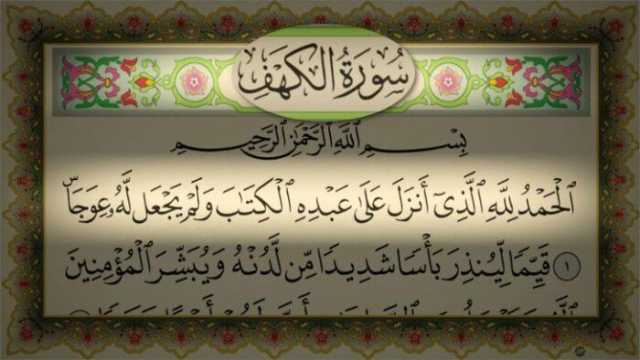 سُورَةُ الْكَهْفِ
بِسْمِ اللَّهِ الرَّحْمَٰنِ الرَّحِيمِ
الْحَمْدُ لِلَّهِ الَّذِي أَنزَلَ عَلَىٰ عَبْدِهِ الْكِتَابَ وَلَمْ يَجْعَل لَّهُ عِوَجَاۜ
١ قَيِّمًا لِّيُنذِرَ بَأْسًا شَدِيدًا مِّن لَّدُنْهُ وَيُبَشِّرَ الْمُؤْمِنِينَ